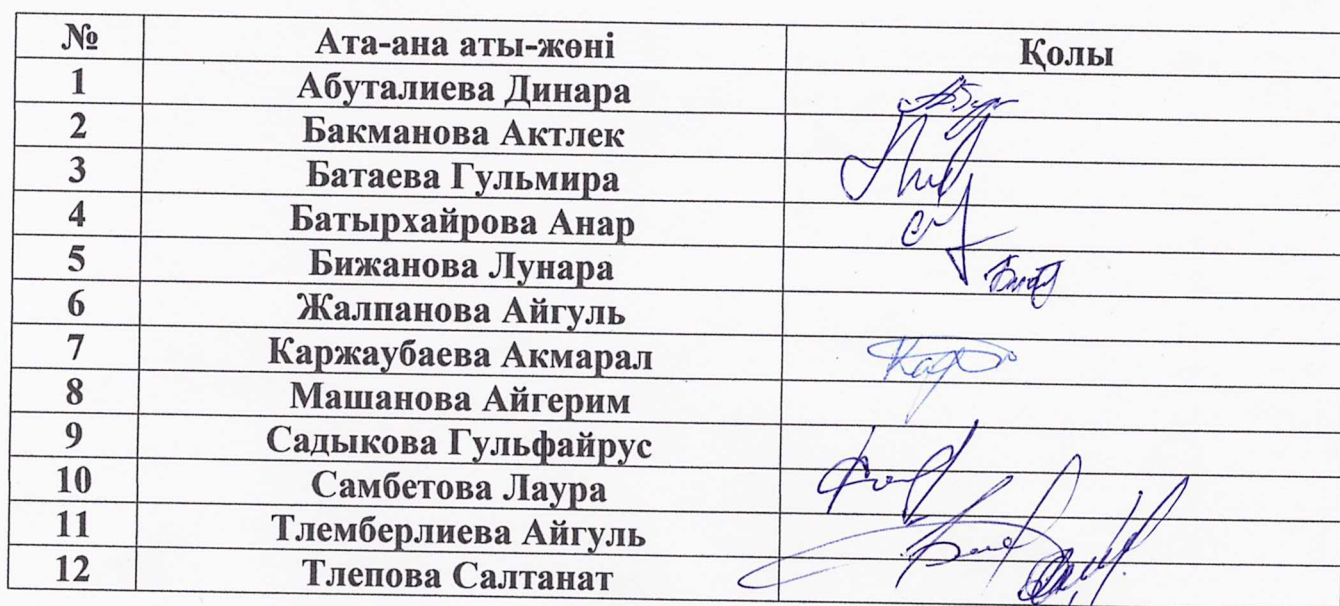 № Ата-ана аты-жөні Қолы
1 Абуталиева Динара
2 Бакманова Актлек
3 Батаева Гульмира
4 Батырхайрова Анар
5 Бижанова Лунара
6 Жалпанова Айгуль
7 Каржаубаева Акмарал
8 Машанова Айгерим
9 Садыкова Гульфайрус
10 Самбетова Лаура
11 Тлемберлиева Айгуль
12 Тлепова Салтанат